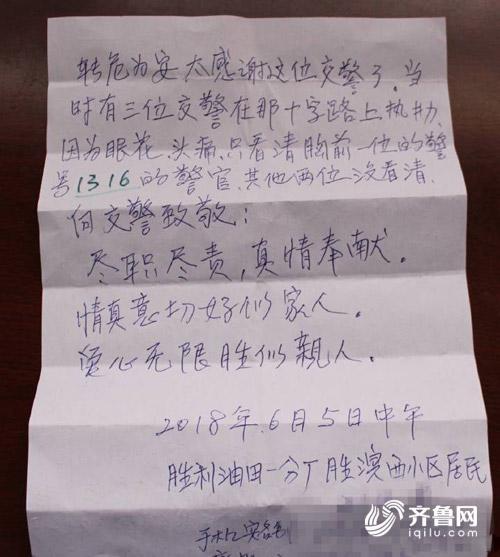 转危为安太感谢这位交警了.当
时有三位交警在那十字路上执勤,
因为眼花、头痛,只看清胸前一位的警
号1316的警官,其他两位没看清.
向交警致敬:
尽职尽责,真情奉献.
情真意切好似家人.
爱心无限胜似親人.
2018年.6月5日中午
胜利油田一分厂胜滨西小区居民
手机
齐鲁网
iqilu.com